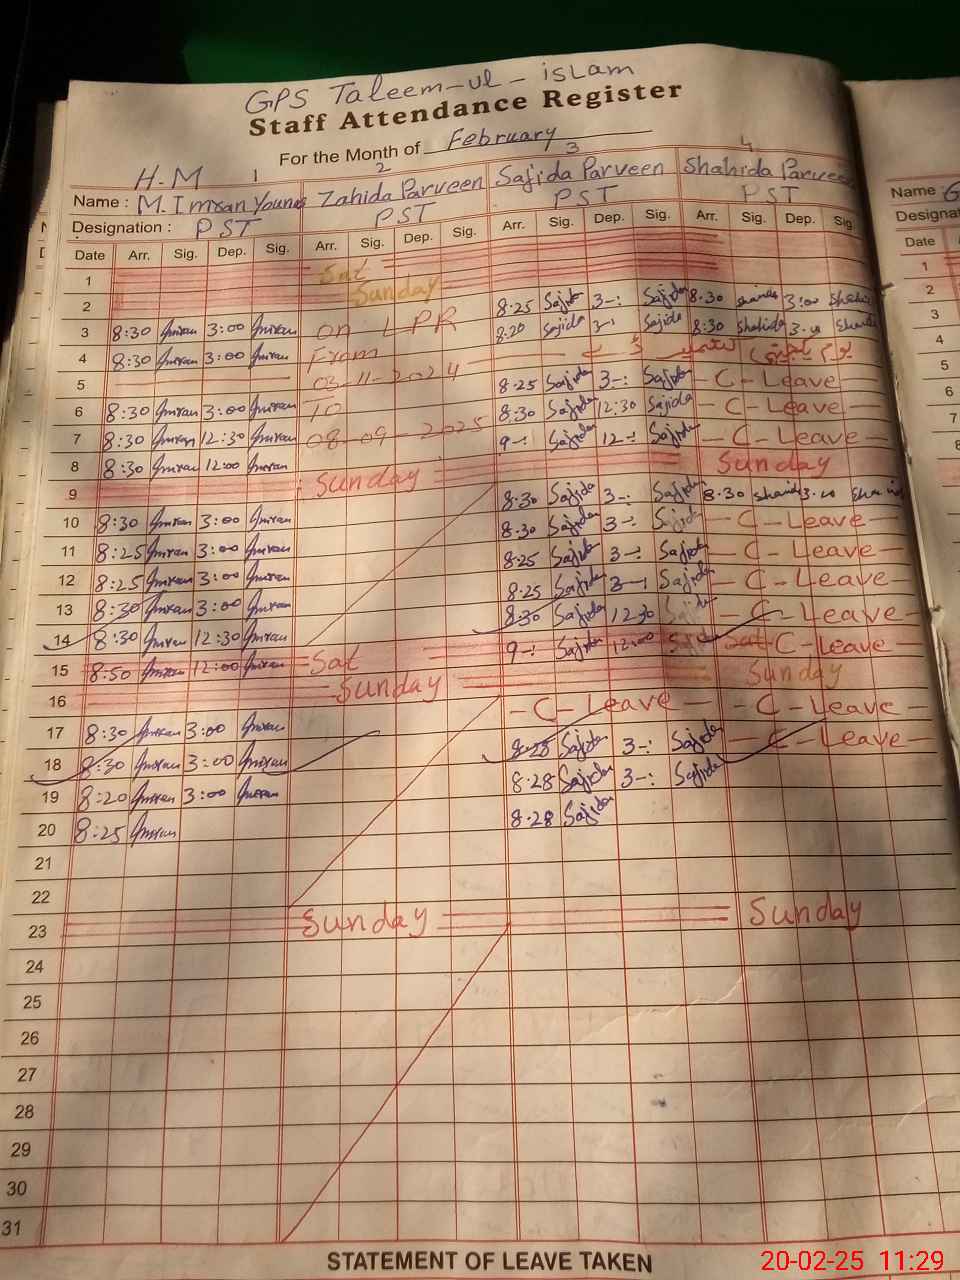 GPS Taleem-ul-islam
Staff Attendance Register
For the Month of February
H.M 1 2 3 4
Name : M. Imran Younas Zahida Parveen Sajida Parveen Shahida Parveen
Designation : PST PST PST PST
Date Arr. Sig. Dep. Sig. Arr. Sig. Dep. Sig. Arr. Sig. Dep. Sig. Arr. Sig. Dep. Sig.
1 Sat
2 Sunday
3 8:30 Imran 3:00 Imran on LPR 8.25 Sajida 3-: Sajida 8.30 Shahida 3:00 Shahida
4 8:30 Imran 3:00 Imran From 8:20 Sajida 3-: Sajida 8:30 Shahida 3.00 Shahida
5 03-11-2024
6 8:30 Imran 3:00 Imran To 8.25 Sajida 3-: Sajida - C - Leave
7 8:30 Imran 12:30 Imran 08-09-2025 8:30 Sajida 12:30 Sajida - C - Leave -
8 8:30 Imran 12:00 Imran 9-: Sajida 12-: Sajida - C - Leave -
9 Sunday Sunday
10 8:30 Imran 3:00 Imran 8.30 Sajida 3-: Sajida 8.30 Shahida 3.00 Shahida
11 8:25 Imran 3:00 Imran 8.30 Sajida 3-: Sajida - C - Leave -
12 8:25 Imran 3:00 Imran 8.25 Sajida 3-: Sajida - C - Leave -
13 8:30 Imran 3:00 Imran 8.25 Sajida 3-: Sajida - C - Leave -
14 8:30 Imran 12:30 Imran 8:30 Sajida 12.30 Sajida - C - Leave -
15 8:50 Imran 12:00 Imran Sat 9-: Sajida 12:00 Sajida Sat C - Leave -
16 Sunday Sunday
17 8:30 Imran 3:00 Imran - C - Leave - - C - Leave -
18 8:30 Imran 3:00 Imran 8.28 Sajida 3-: Sajida - C - Leave -
19 8:20 Imran 3:00 Imran 8.28 Sajida 3-: Sajida
20 8:25 Imran 8.28 Sajida
21
22
23 Sunday Sunday
24
25
26
27
28
29
30
31
STATEMENT OF LEAVE TAKEN
Name : G
Designat
Date
1
2
3
4
5
6
7
8
20-02-25 11:29